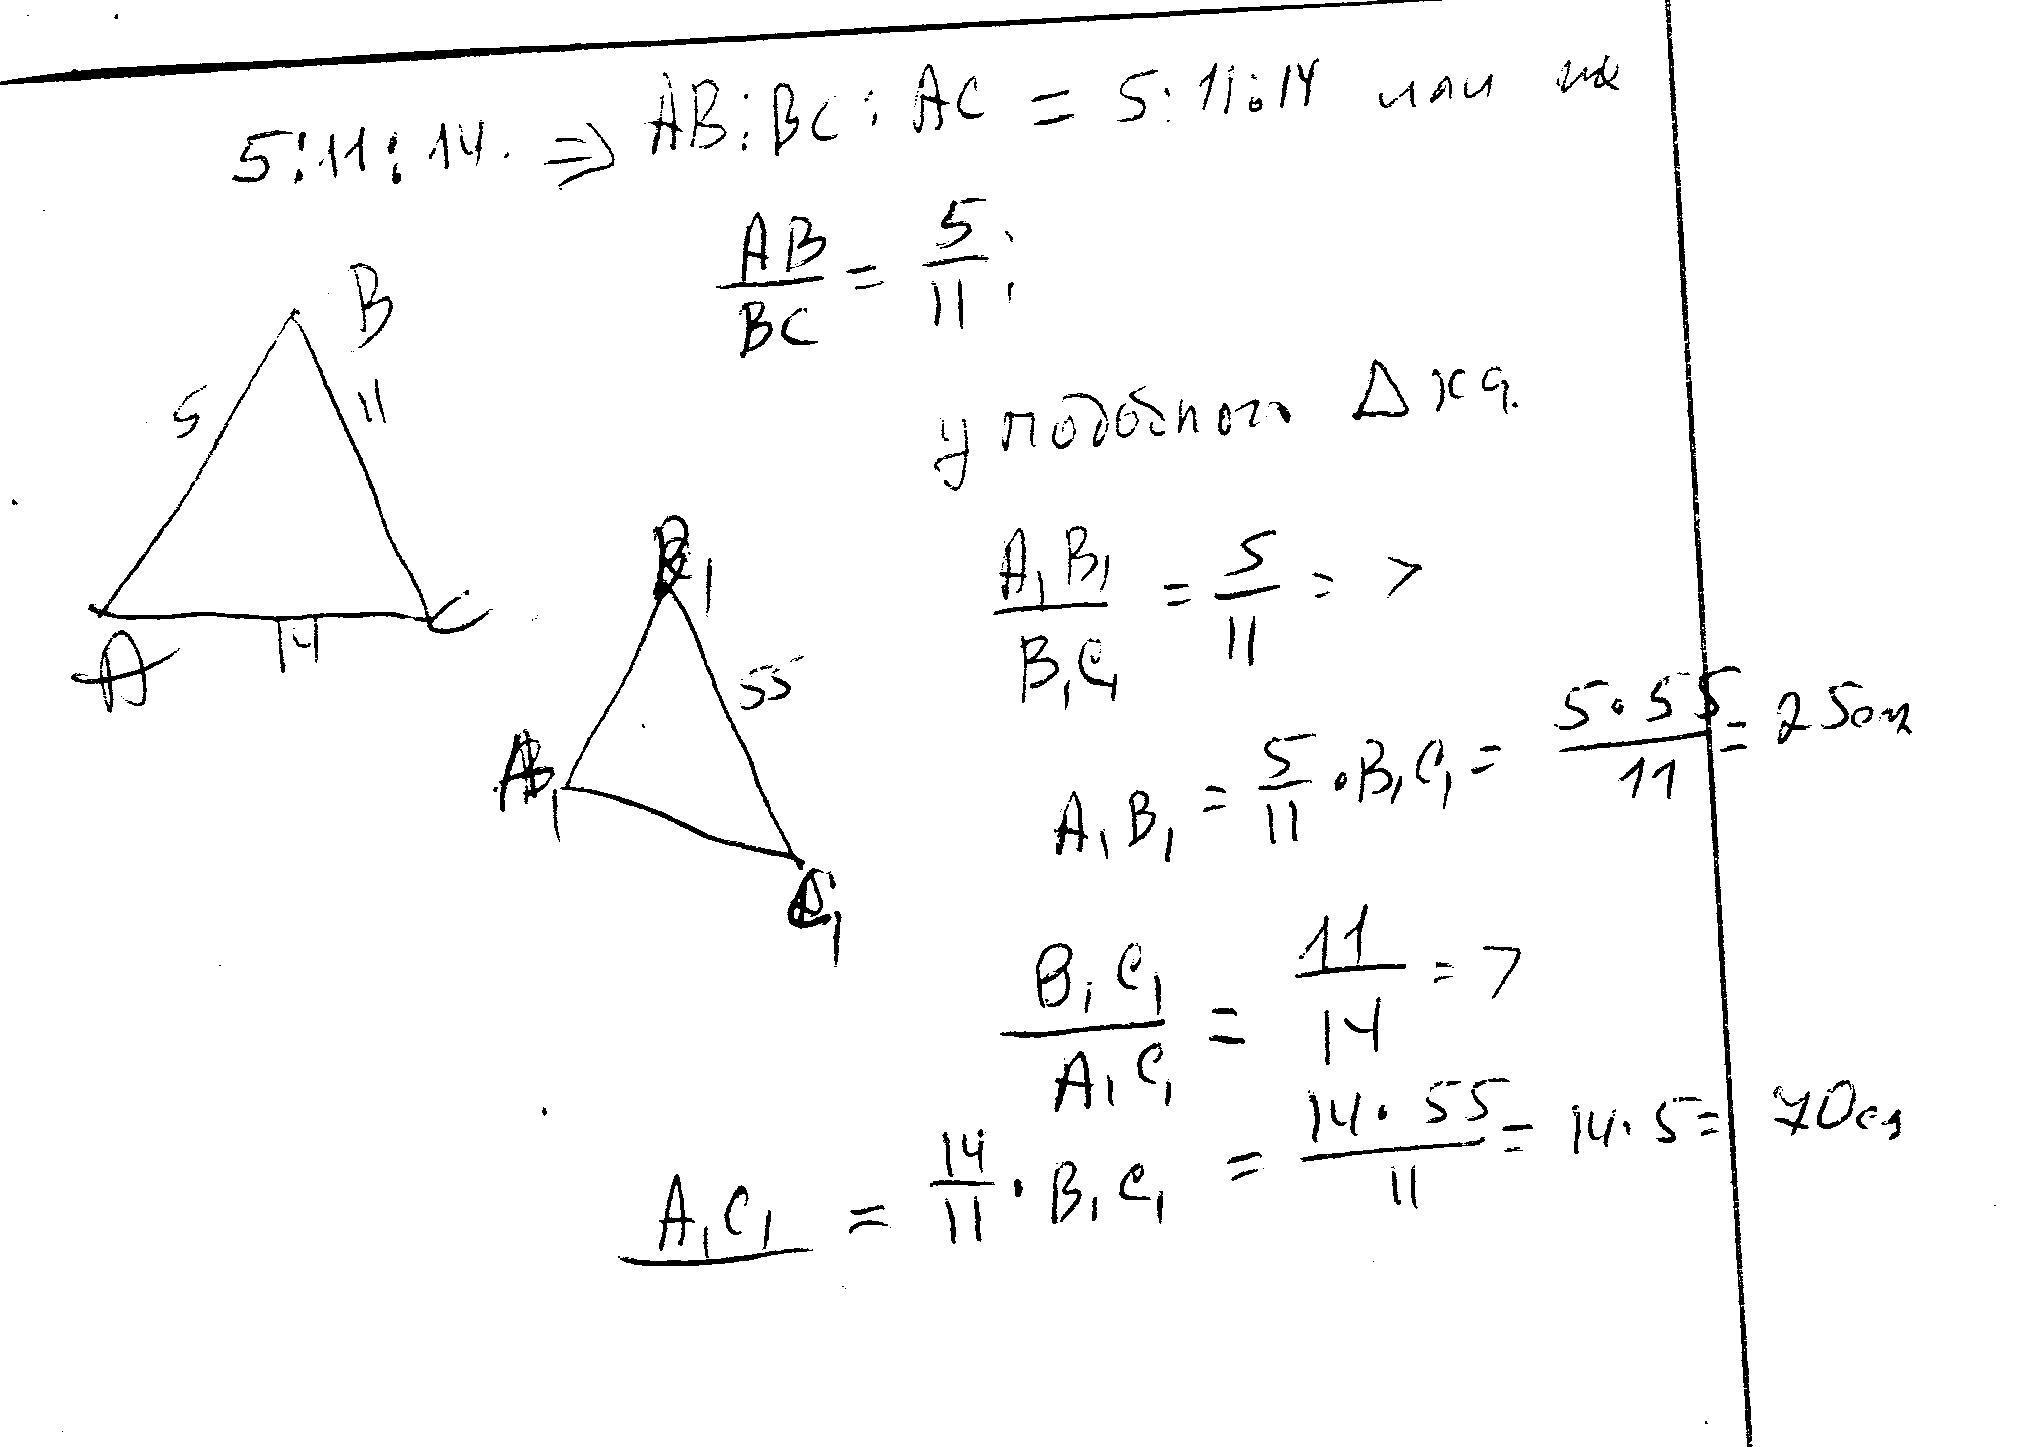 5:11:14. => AB:BC:AC = 5:11:14 или
AB/BC = 5/11;
B
5
11
A
14
C
у подобного Δ
B₁
55
A₁
C₁
A₁B₁/B₁C₁ = 5/11 =>
A₁B₁ = 5/11 · B₁C₁ = 5·55/11 = 25см
B₁C₁/A₁C₁ = 11/14 =>
A₁C₁ = 14/11 · B₁C₁ = 14·55/11 = 14·5 = 70см